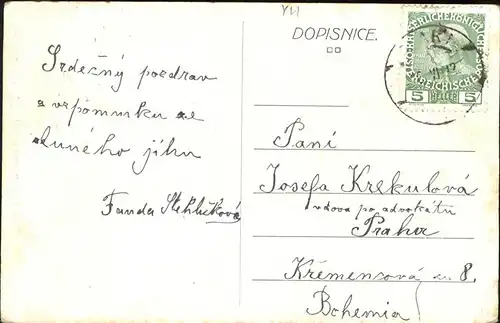 VII
DOPISNICE.
5 HELLER 5
Srdečný pozdrav
a vzpomínku ze
slunného jihu
Fanda Stehlíková
Paní
Josefa Krekulová
vdova po advokátu
Praha
Křemencová 8.
Bohemia